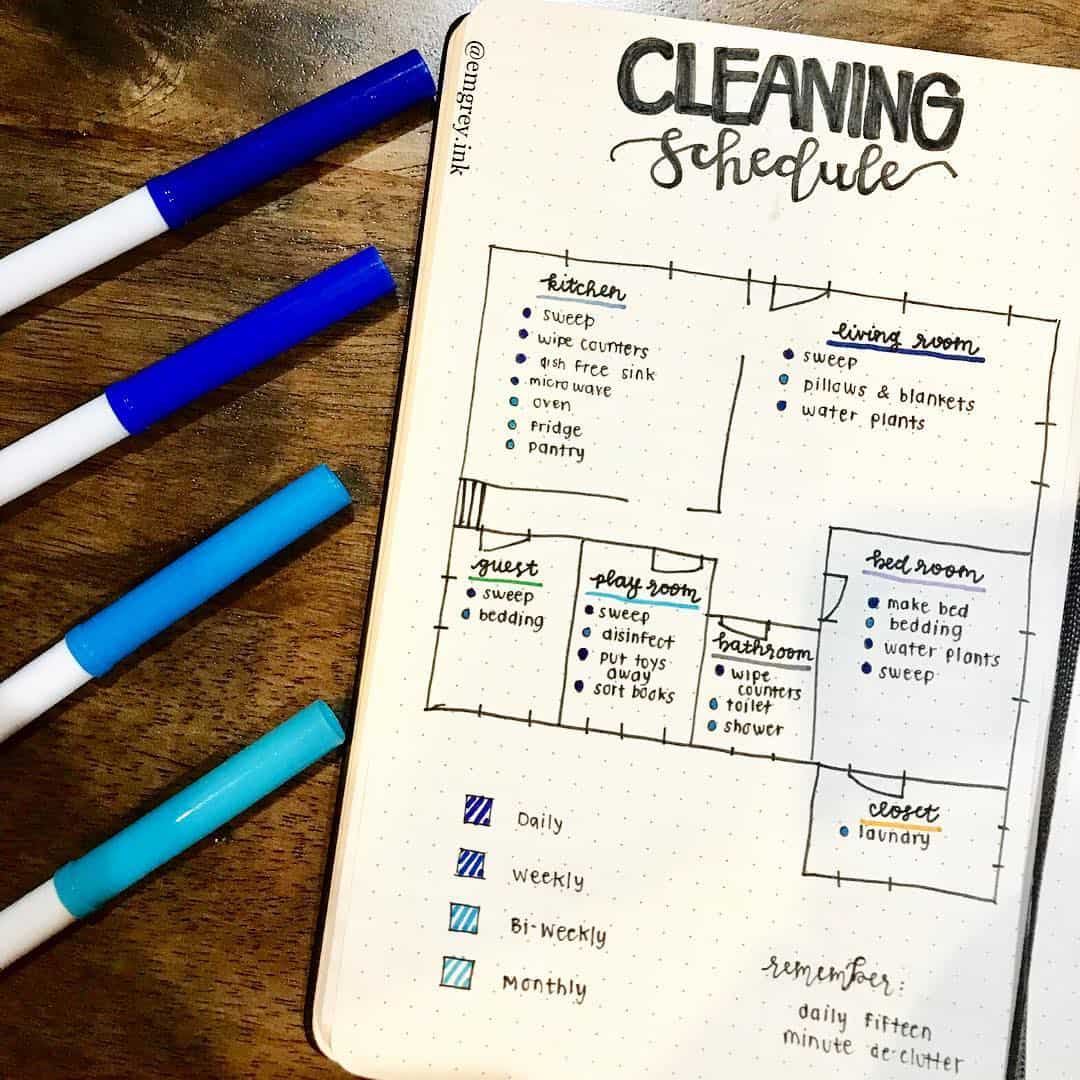 @emgrey.ink
CLEANING
schedule
kitchen
sweep
wipe counters
dish free sink
microwave
oven
fridge
pantry
living room
sweep
pillows & blankets
water plants
guest
sweep
bedding
play room
sweep
disinfect
put toys
away
sort books
bathroom
wipe
counters
toilet
shower
bed room
make bed
bedding
water plants
sweep
closet
laundry
Daily
weekly
Bi-weekly
Monthly
remember:
daily fifteen
minute de-clutter